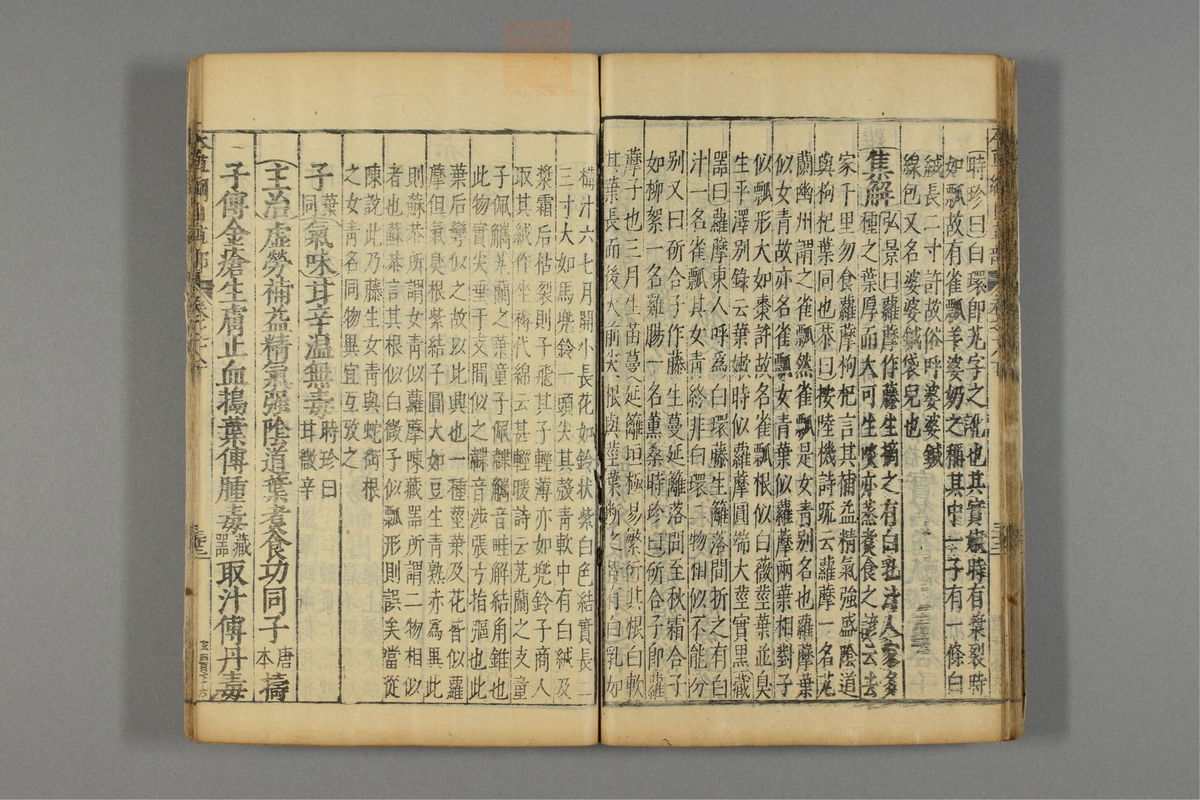 時珍曰白環即芄字之訛也其實嫩時有漿裂時
如瓢故有雀瓢羊婆奶之稱其中一子有一條白
絨長二寸許故俗呼婆婆鍼
線包又名婆婆鍼袋兒也
集解弘景曰蘿藦作藤生摘之有白乳汁人家多
種之葉厚而大可生啖亦蒸煮食之諺云去
家千里勿食蘿摩枸杞言其補益精氣強盛陰道
與枸杞葉同也恭曰按陸機詩疏云蘿摩一名芄
蘭幽州謂之雀瓢然雀瓢是女青別名也蘿摩葉
似女青故亦名雀瓢女青葉似蘿摩兩葉相對子
似瓢形大如棗許故名雀瓢根似白薇莖葉並臭
生平澤別錄云葉嫩時似蘿摩圓端大莖實黑藏
器曰蘿摩東人呼爲白環藤生籬落間折之有白
汁一名雀瓢其女青終非白環二物相似不能分
別又曰斫合子作藤生蔓延籬落間至秋霜合子
如柳絮一名雞腸一名薰桑時珍曰斫合子即蘿
藦子也三月生苗蔓延籬垣極易繁衍其根白軟
其葉長而後大前尖根與莖葉斷之皆有白乳如
構汁六七月開小長花如鈴狀紫白色結實長二
三寸大如馬兜鈴一頭尖其殼青軟中有白絨及
漿霜后枯裂則子飛其子輕薄亦如兜鈴子商人
取其絨作坐褥代綿云甚輕暖詩云芄蘭之支童
子佩觿芄蘭之葉童子佩韘觿音畦解結角錐也
此物實尖垂于支間似之韘音涉張弓指彄也此
葉后彎似之故以比興也一種莖葉及花皆似蘿
藦但氣臭根紫結子圓大如豆生青熟赤爲異此
則蘇恭所謂女青似蘿摩陳藏器所謂二物相似
者也蘇恭言其根似白微子似瓢形則誤矣當從
陳說此乃藤生女青與蛇銜根
之女青名同物異宜互攷之
子葉同氣味甘辛溫無毒時珍曰甘微辛
主治虛勞補益精氣强陰道葉煮食功同子唐本擣
子傅金瘡生膚止血搗葉傅腫毒藏器取汁傅丹毒